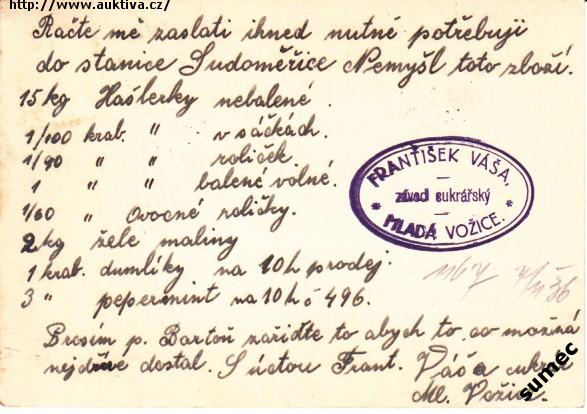 http://www.auktiva.cz/
Račte mě zaslati ihned nutně potřebuji
do stanice Sudoměřice Nemyšl toto zboží.
15 kg Hašlerky nebalené.
1/100 krab. " v sáčkách.
1/90 " " roliček.
1 " " balené volné.
1/60 " Ovocné roličky.
2 kg žele maliny
1 krab. dumlíky na 10 h prodej.
3 " pepermint na 10 h č 496.
FRANTIŠEK VÁŠA,
závod cukrářský
* MLADÁ VOŽICE. *
Prosím p. Bartoň zařiďte to abych to co možná
nejdříve dostal. S úctou Frant. Váša cukrář
Ml. Vožice.
sumec